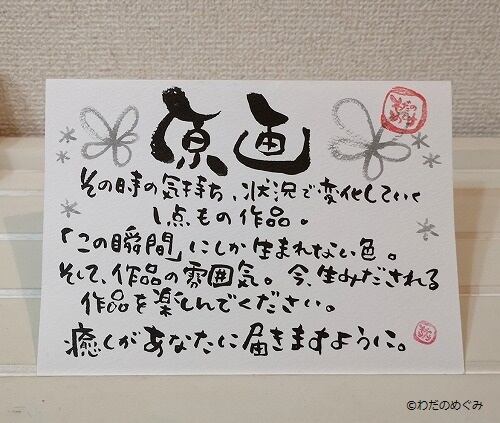 原画
わだの
めぐみ
その時の気持ち、状況で変化していく
1点もの作品。
「この瞬間」にしか生まれない色。
そして、作品の雰囲気。今、生みだされる
作品を楽しんでください。
癒しがあなたに届きますように。
©わだのめぐみ